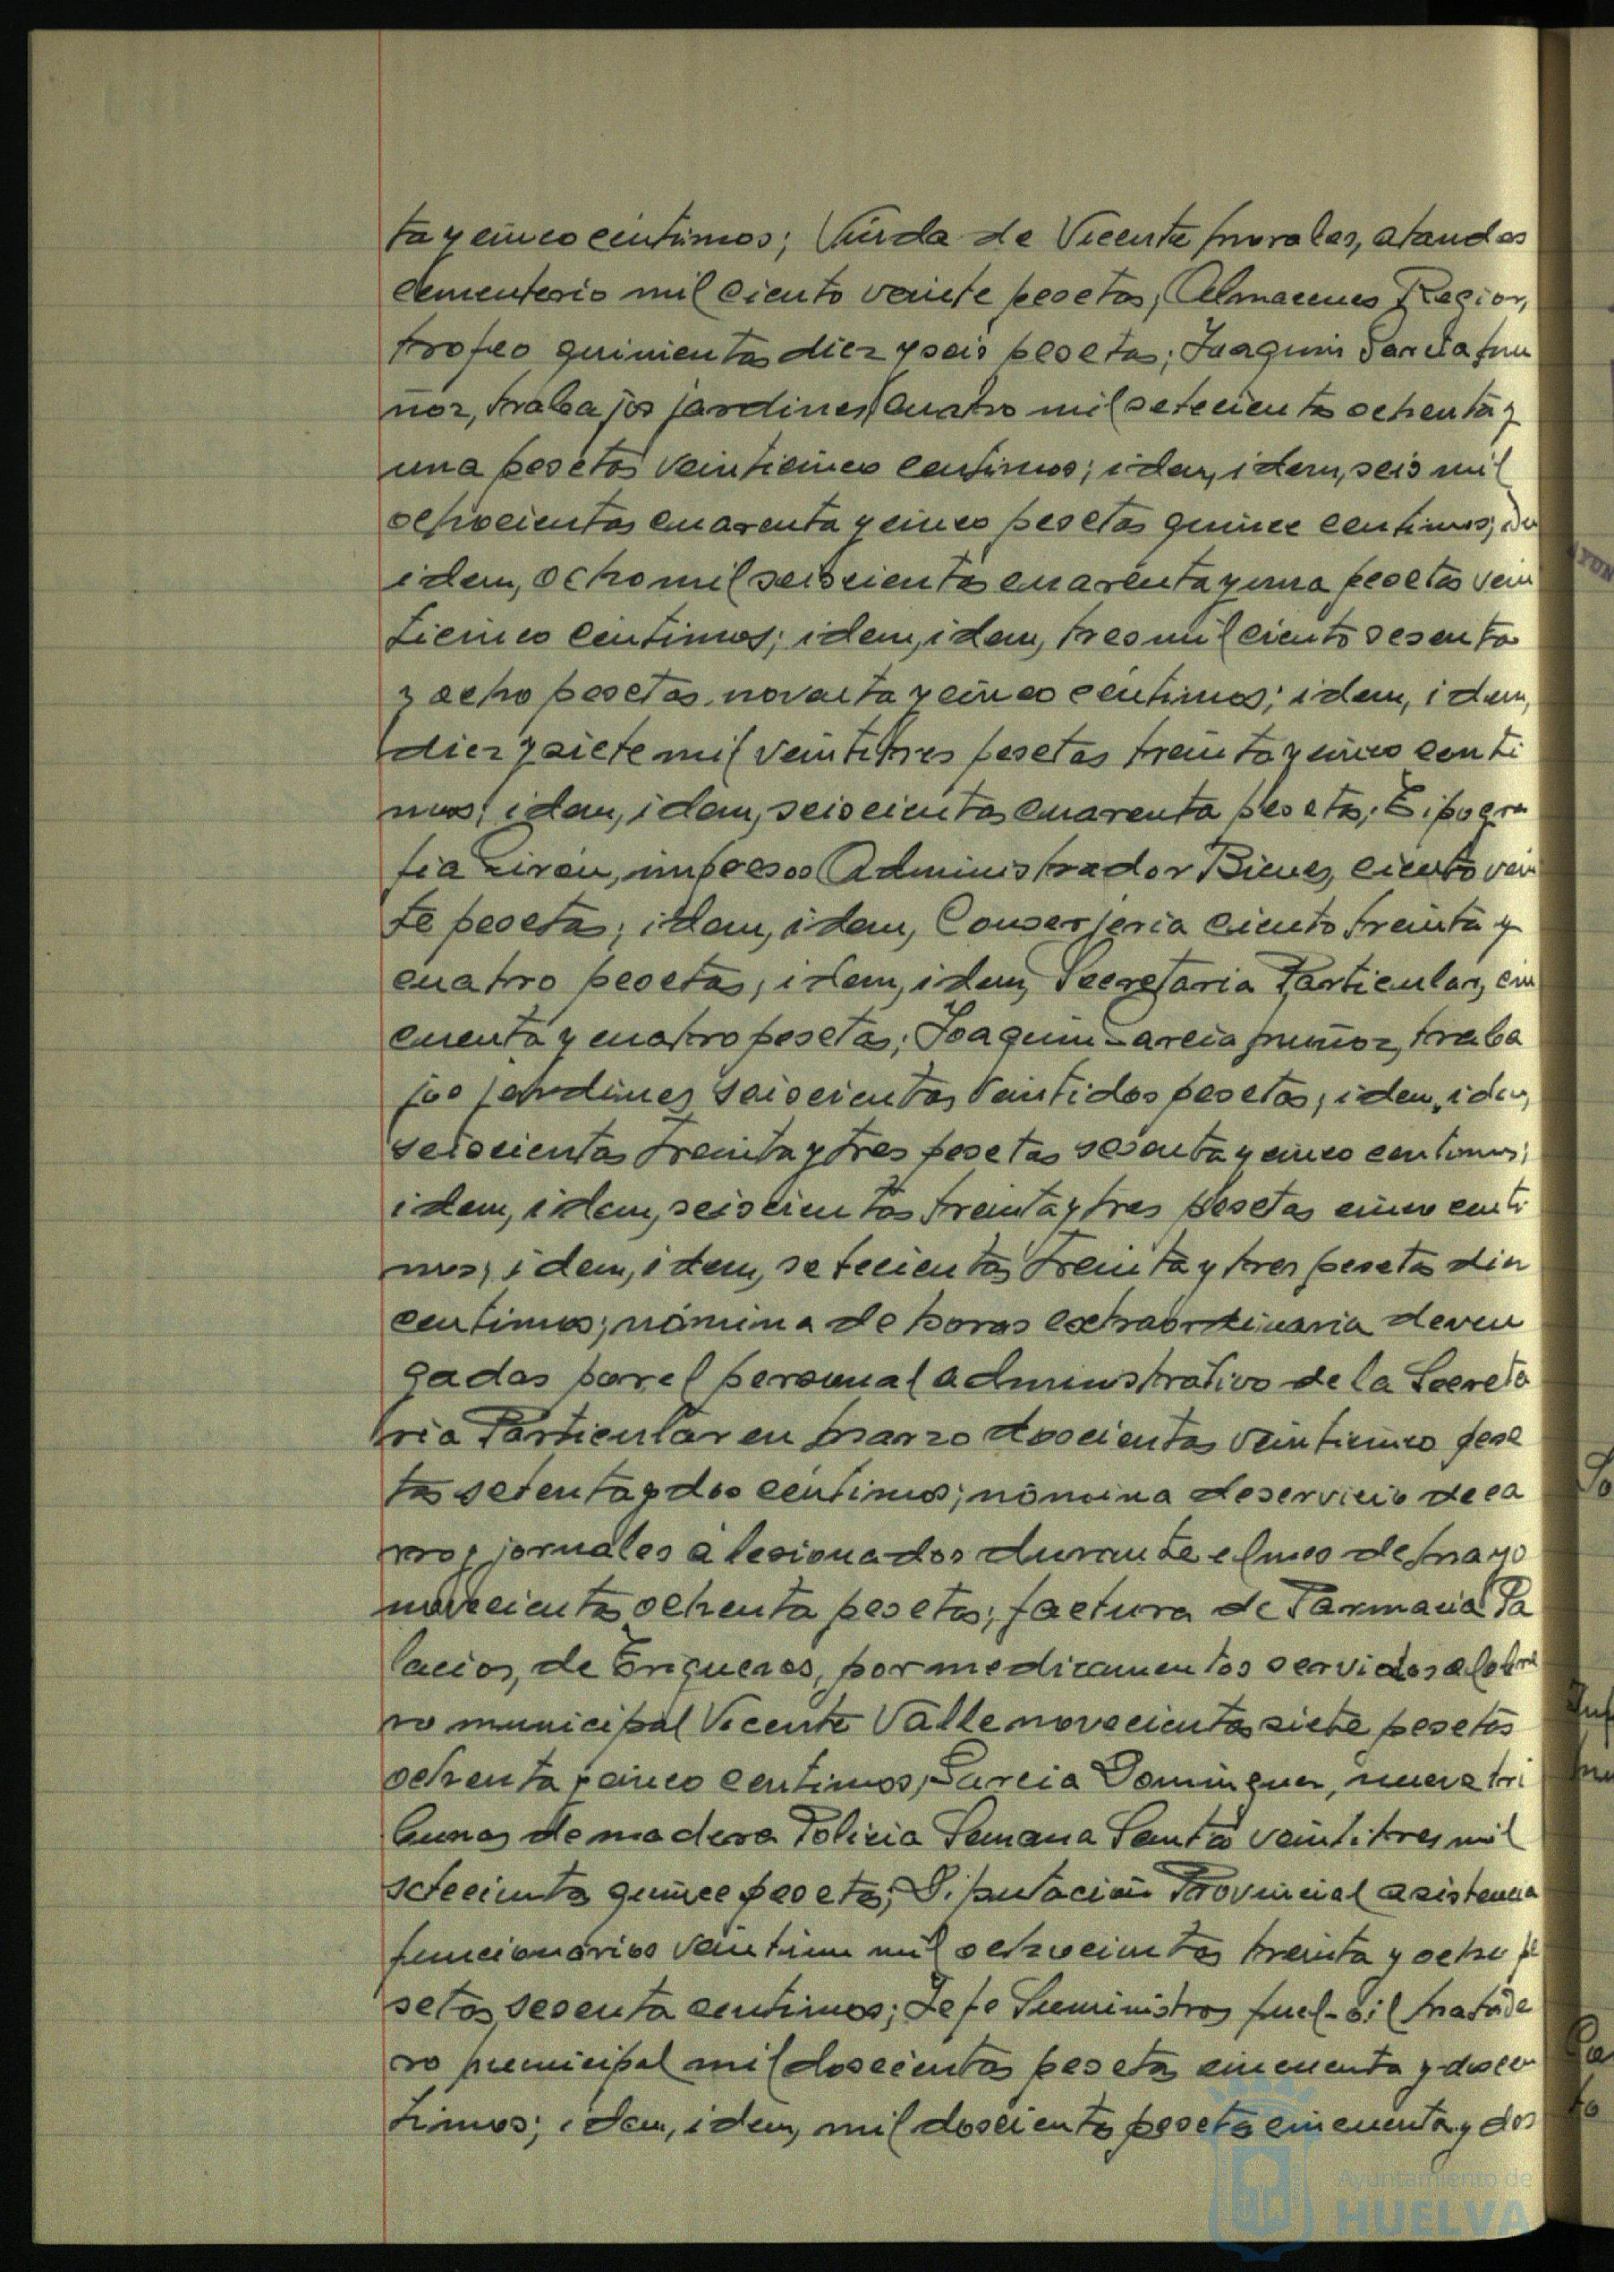 ta y cinco centimos; Viuda de Vicente Morales, ataudes
cementerio mil ciento veinte pesetas; Almacenes Regios,
trofeo quinientas diez y seis pesetas; Joaquin Garcia Mu
ñoz, trabajos jardines cuatro mil setecientas ochenta y
una pesetas veinticinco centimos; idem, idem, seis mil
ochocientas cuarenta y cinco pesetas quince centimos;
idem, ocho mil seiscientas cuarenta y una pesetas vein
ticinco centimos; idem, idem, tres mil ciento sesenta
y ocho pesetas noventa y cinco centimos; idem, idem,
diez y siete mil veintitres pesetas treinta y cinco centi
mos; idem, idem, seiscientas cuarenta pesetas; Tipogra
fia Girón, impresos Administrador Bienes, ciento vein
te pesetas; idem, idem, Conserjeria ciento treinta y
cuatro pesetas; idem, idem, Secretaria Particular, cin
cuenta y cuatro pesetas; Joaquin Garcia Muñoz, traba
jos jardines seiscientas veintidos pesetas; idem, idem,
seiscientas treinta y tres pesetas sesenta y cinco centimos;
idem, idem, seiscientas treinta y tres pesetas cinco centi
mos; idem, idem, setecientas treinta y tres pesetas diez
centimos; nómina de horas extraordinaria deven
gadas por el personal administrativo de la Secreta
ria Particular en Marzo doscientas veinticinco pese
tas setenta y dos centimos; nómina de servicio de ca
rro y jornales a lesionados durante el mes de Mayo
novecientas ochenta pesetas; factura de Farmacia Pa
lacios, de Trigueros, por medicamentos servidos al obre
ro municipal Vicente Valle novecientas siete pesetas
ochenta y cinco centimos; Garcia Dominguez, nueve tri
bunas de madera Policia Semana Santa veintitres mil
setecientas quince pesetas; Diputación Provincial asistencia
funcionarios veintiun mil ochocientas treinta y ocho pe
setas sesenta centimos; Jefe Suministros fuel-oil Matade
ro Municipal mil doscientas pesetas cincuenta y dos cen
timos; idem, idem, mil doscientas pesetas cincuenta y dos
Ayuntamiento de
HUELVA